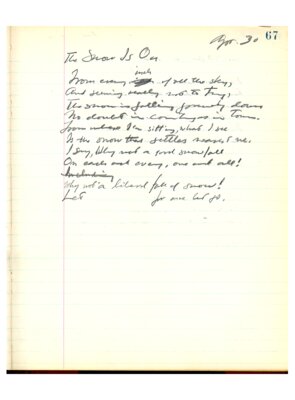 67
Apr. 30
The Snow Is On
inch
From every of all the sky,
And seeming not to try,
The snow is falling down
No doubt in country as in town.
From where I'm sitting, what I see
Is the snow that settles nearest me.
I say, Why not a good snowfall
On each and every, one and all!
Including
Why not a fall of snow!
Let for one let go.